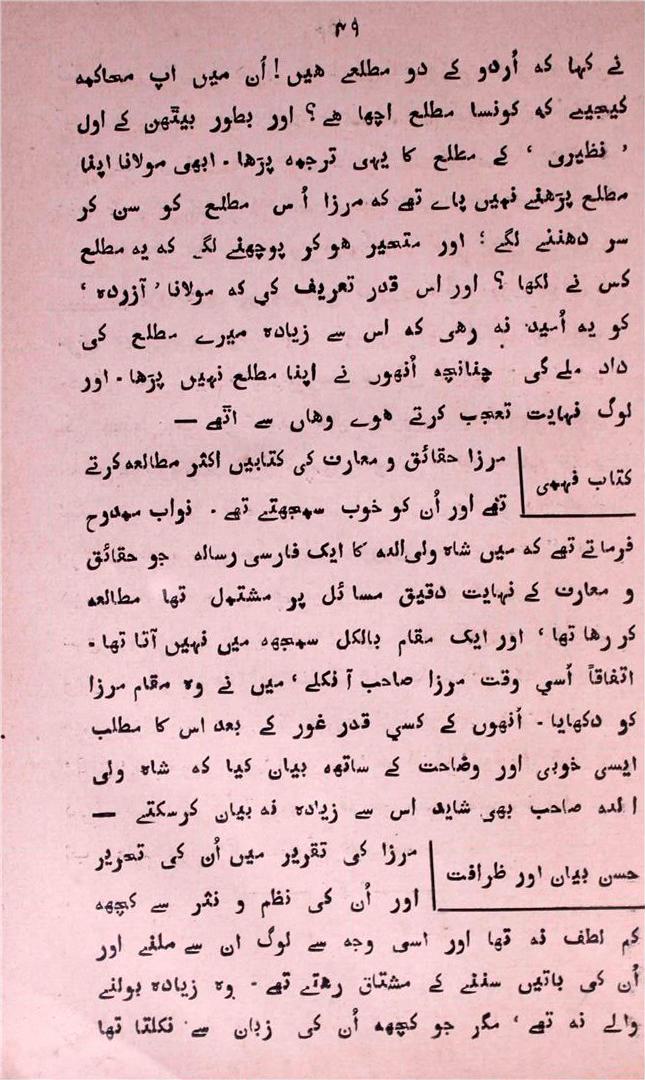 ۴۹
نے کہا کہ اُردو کے دو مطلعے ھیں! اُن میں اپ محاکمہ
کیجیے کہ کونسا مطلع اچھا ھے؟ اور بطور بیتھن کے اول
’نظیری‘ کے مطلع کا یہی ترجمہ پڑھا۔ ابھی مولانا اپنا
مطلع پڑھنے نہیں پاے تھے کہ مرزا اُس مطلع کو سن کر
سر دھننے لگے؛ اور متحیر ھوکر پوچھنے لگے کہ یہ مطلع
کس نے لکھا؟ اور اس قدر تعریف کی کہ مولانا ’آزردہ‘
کو یہ اُمید نہ رھی کہ اس سے زیادہ میرے مطلع کی
داد ملے گی چنانچہ اُنھوں نے اپنا مطلع نہیں پڑھا۔ اور
لوگ نہایت تعجب کرتے ھوے وھاں سے اٹھے —
کتاب فہمی
مرزا حقائق و معارف کی کتابیں اکثر مطالعہ کرتے
تھے اور اُن کو خوب سمجھتے تھے۔ نواب ممدوح
فرماتے تھے کہ میں شاہ ولی اللہ کا ایک فارسی رسالہ جو حقائق
و معارف کے نہایت دقیق مسائل پر مشتمل تھا مطالعہ
کر رھا تھا، اور ایک مقام بالکل سمجھ میں نہیں آتا تھا۔
اتفاقاً اُسی وقت مرزا صاحب آ نکلے، میں نے وہ مقام مرزا
کو دکھایا۔ اُنھوں نے کسی قدر غور کے بعد اس کا مطلب
ایسی خوبی اور وضاحت کے ساتھ بیان کیا کہ شاہ ولی
اللہ صاحب بھی شاید اس سے زیادہ نہ بیان کرسکتے —
حسن بیان اور ظرافت
مرزا کی تقریر میں اُن کی تحریر
اور اُن کی نظم و نثر سے کچھ
کم لطف نہ تھا اور اسی وجہ سے لوگ ان سے ملنے اور
اُن کی باتیں سننے کے مشتاق رھتے تھے۔ وہ زیادہ بولنے
والے نہ تھے، مگر جو کچھ اُن کی زبان سے نکلتا تھا